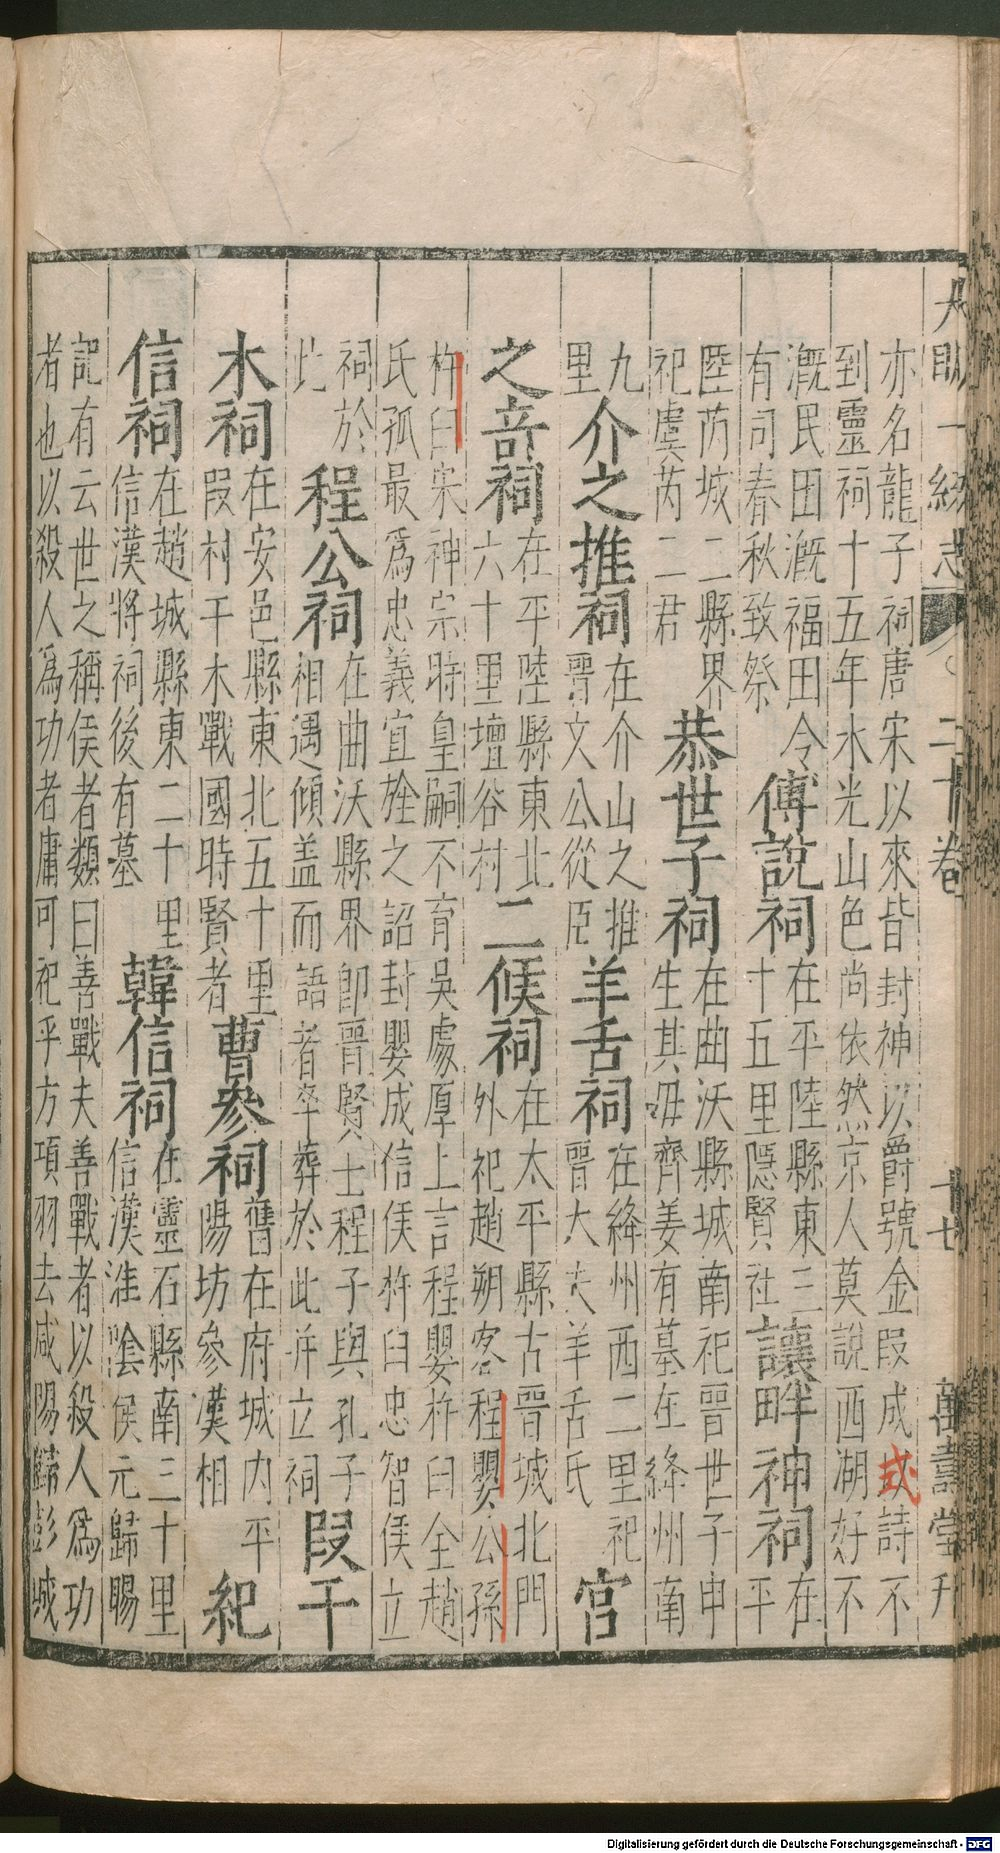 大明一統志 二十卷 十七 萬壽堂刋
亦名龍子祠唐宋以來皆封神以爵號金段成式詩不
到靈祠十五年水光山色尚依然京人莫說西湖好不
溉民田溉福田令
有司春秋致祭
傅說祠
在平陸縣東三
十五里隱賢社
讓畔神祠
在平
陸芮城二縣界
祀虞芮二君
恭世子祠
在曲沃縣城南祀晋世子申
生其母齊姜有墓在絳州南
九
里
介之推祠
在介山之推
晋文公從臣
羊舌祠
在絳州西二里祀
晋大夫羊舌氏
宮
之奇祠
在平陸縣東北
六十里壇谷村
二侯祠
在太平縣古晋城北門
外祀趙朔客程嬰公孫
杵臼宋神宗時皇嗣不育吳處厚上言程嬰杵臼全趙
氏孤最爲忠義宜旌之詔封嬰成信侯杵臼忠智侯立
祠於
此
程公祠
在曲沃縣界即晋賢士程子與孔子
相遇傾盖而語者卒葬於此并立祠
段干
木祠
在安邑縣東北五十里
段村干木戰國時賢者
曹參祠
舊在府城内平
陽坊參漢相
紀
信祠
在趙城縣東二十里
信漢將祠後有墓
韓信祠
在靈石縣南三十里
信漢淮隂侯元歸暘
記有云世之稱侯者類曰善戰夫善戰者以殺人爲功
者也以殺人爲功者庸可祀乎方項羽去咸陽歸彭城
Digitalisierung gefördert durch die Deutsche Forschungsgemeinschaft - DFG